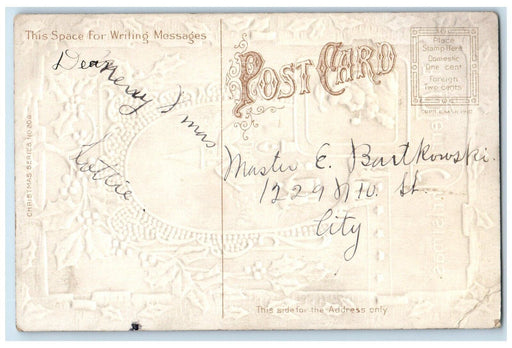 This Space for Writing Messages
POST CARD
Place
Stamp Here
Domestic
One cent
Foreign
Two cents
Merry Xmas
Lottie.
Master E. Bartkowski.
1229 St.
City
CHRISTMAS SERIES NO.
This side for the Address only